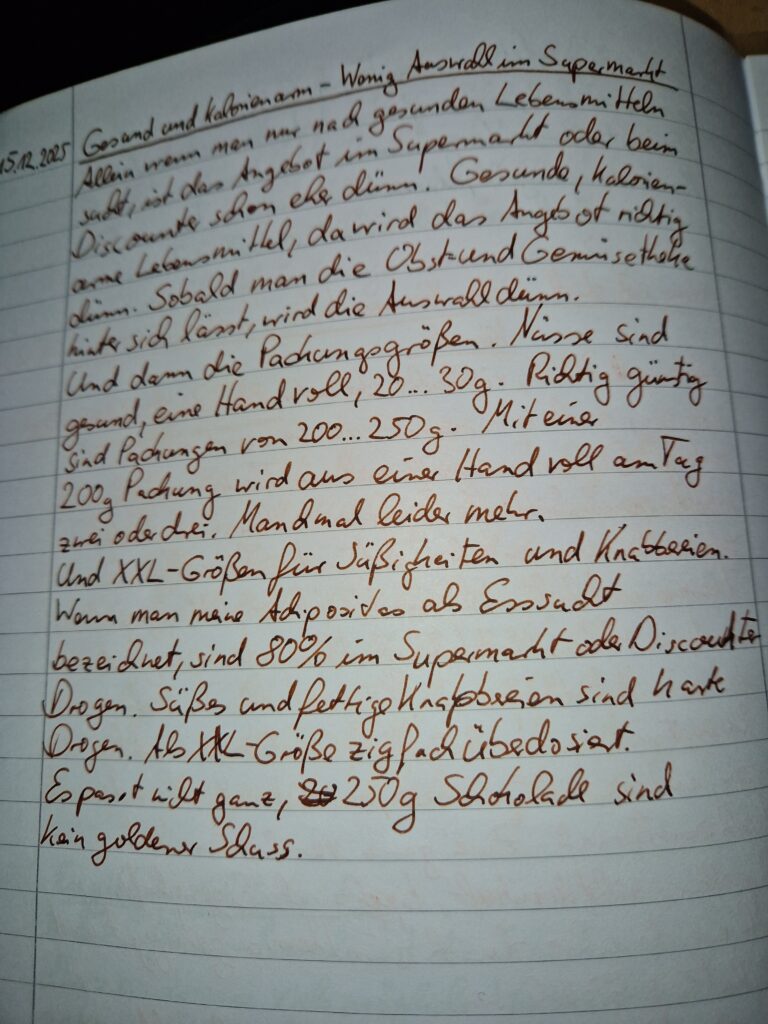 15.12.2025 Gesund und kalorienarm - Wenig Auswahl im Supermarkt
Allein wenn man nur nach gesunden Lebensmitteln
sucht, ist das Angebot im Supermarkt oder beim
Discounter schon eher dünn. Gesunde, kalorien-
arme Lebensmittel, da wird das Angebot richtig
dünn. Sobald man die Obst- und Gemüsetheke
hinter sich lässt, wird die Auswahl dünn.
Und dann die Packungsgrößen. Nüsse sind
gesund, eine Hand voll, 20...30g. Richtig günstig
sind Packungen von 200...250g. Mit einer
200g Packung wird aus einer Hand voll am Tag
zwei oder drei. Manchmal leider mehr.
Und XXL-Größen für Süßigkeiten und Knabbereien.
Wenn man meine Adipositas als Esssucht
bezeichnet, sind 80% im Supermarkt oder Discounter
Drogen. Süßes und fettige Knabbereien sind harte
Drogen. Als XXL-Größe zigfach überdosiert.
Es passt nicht ganz, 250g Schokolade sind
kein goldener Schuss.